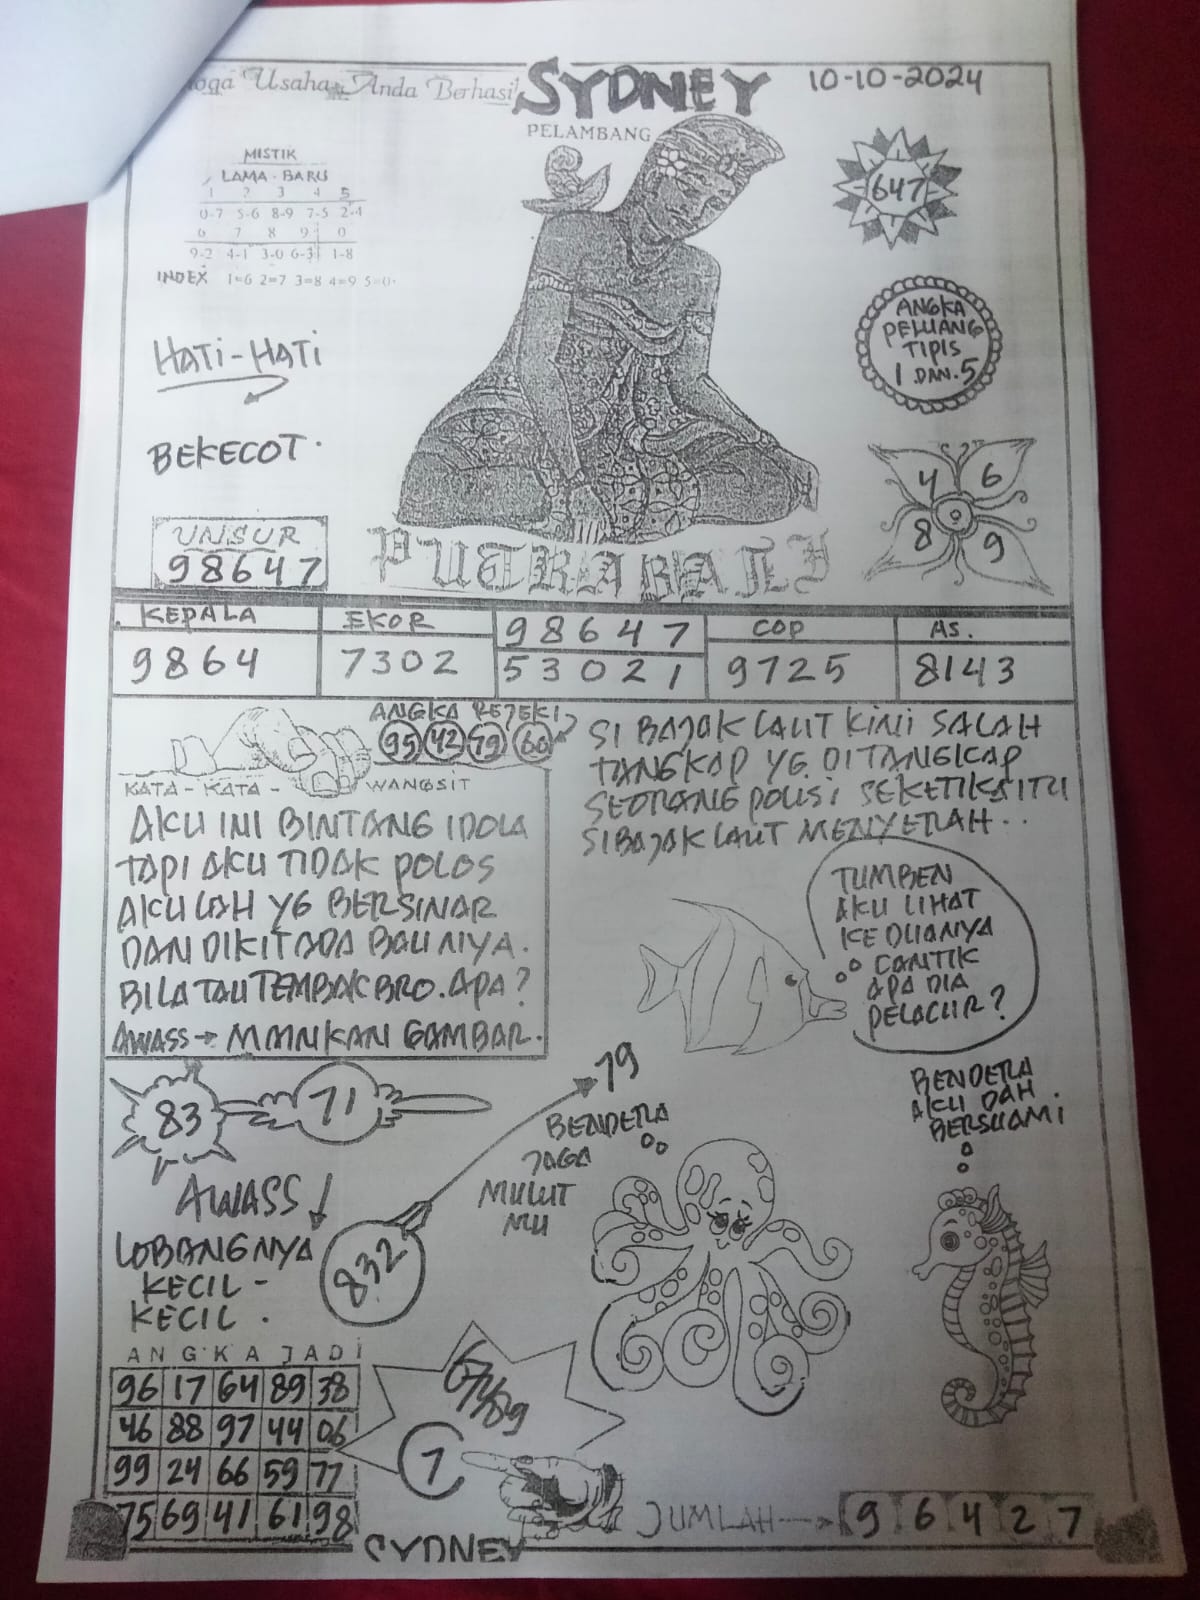 oga Usaha Anda Berhasil
SYDNEY
10-10-2024
PELAMBANG
MISTIK
LAMA - BARU
1 2 3 4 5
0-7 5-6 8-9 7-5 2-4
6 7 8 9 0
9-2 4-1 3-0 6-3 1-8
INDEX 1=6 2=7 3=8 4=9 5=0
647
ANGKA
PELUANG
TIPIS
1 DAN 5
HATI-HATI
BEKECOT
4 6
8 9
UNSUR
98647
PUTRA BALI
KEPALA
9864
EKOR
7302
98647
53021
COP
9725
AS.
8143
ANGKA REJEKI
95 42 79 60
KATA - KATA - WANGSIT
AKU INI BINTANG IDOLA
TAPI AKU TIDAK POLOS
AKULAH YG BERSINAR
DAN DIKITADA BAUNYA.
BILA TAU TEMBAK BRO. APA?
AWASS → MAINKAN GAMBAR.
SI BAJAK LAUT KINI SALAH
TANGKAP YG DITANGKAP
SEORANG POLISI SEKETIKA ITU
SIBAJAK LAUT MENYERAH..
TUMBEN
AKU LIHAT
KEDUANYA
CANTIK
APA DIA
PELACUR?
83
71
79
BENDERA
JAGA
MULUT
MU
BENDERA
AKU DAH
BERSUAMI
AWASS
LOBANGNYA
KECIL -
KECIL.
832
ANGKA JADI
96 17 64 89 38
46 88 97 44 06
99 24 66 59 77
75 69 41 61 98
67489
7
SYDNEY
JUMLAH → 9 6 4 2 7